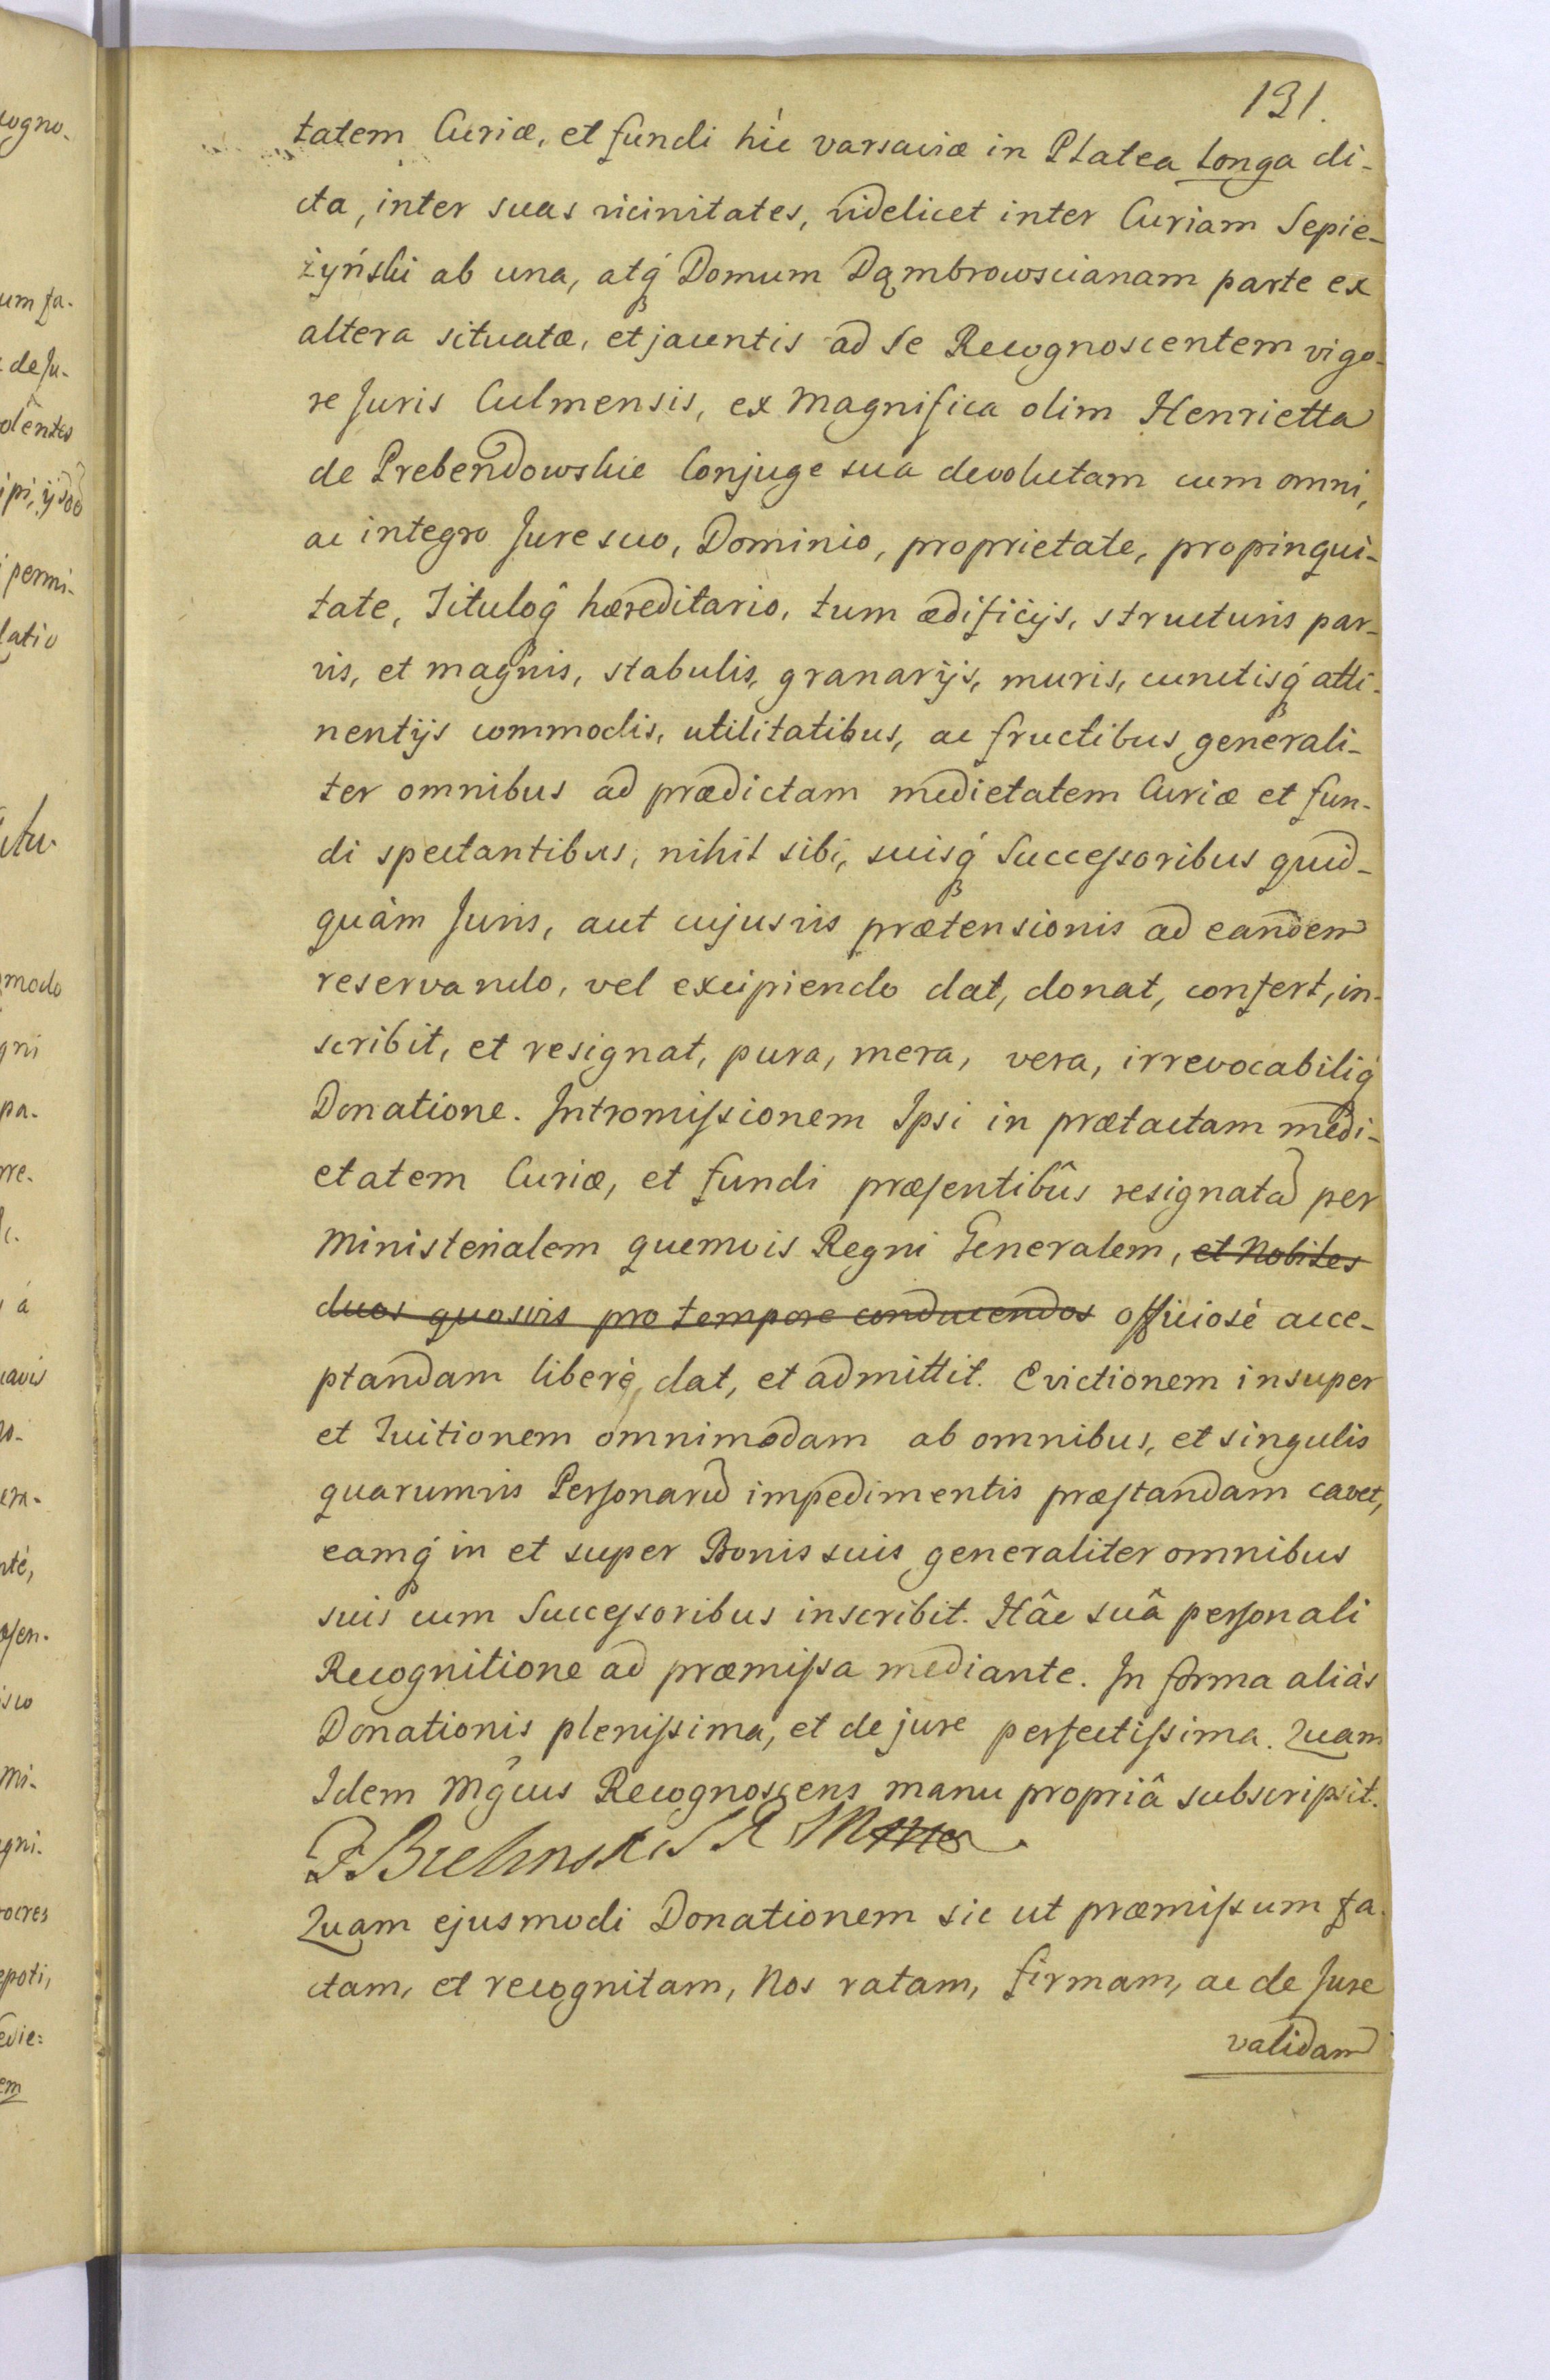 131.
tatem Curiæ, et fundi hìc varsaviæ in Platea Longa di-
cta, inter suas vicinitates, videlicet inter Curiam Sepie-
żyński ab una, atq́ Domum Dąmbrowscianam parte ex
altera situatæ, et jacentis ad se Recognoscentem vigo-
re Juris Culmensis, ex Magnifica olim Henrietta
de Prebendowskie Conjuge sua devolutam cum omni,
ac integro Jure suo, Dominio, proprietate, propinqui-
tate, Tituloq̂ hæreditario, tum ædificijs, structuris par-
vis, et magnis, stabulis, granarijs, muris, cunctisq́ atti-
nentijs commodis, utilitatibus, ac fructibus generali-
ter omnibus ad prædictam medietatem Curiæ et fun-
di spectantibus, nihil sibi, suisq́ Successoribus quid-
quàm Juris, aut cujusvis prætensionis ad eandem
reservando, vel excipiendo dat, donat, confert, in-
scribit, et resignat, pura, mera, vera, irrevocabiliq́
Donatione. Intromissionem Ipsi in prætactam medi-
etatem Curiæ, et fundi præsentibûs resignatã per
Ministerialem quemvis Regni Generalem, et Nobiles
duos quosvis pro tempore conducendos officiosè acce-
ptandam liberè dat, et admittit. Evictionem insuper
et Tuitionem omnimodam ab omnibus, et singulis
quarumvis Personarũ impedimentis præstandam cavet,
eamq́ in et super Bonis suis generaliter omnibus
suis cum Successoribus inscribit. Hâc suâ personali
Recognitione ad præmissa mediante. In forma aliàs
Donationis plenissima, et de jure perfectissima. Quam
Idem Mg̃cus Recognoscens manu propriâ subscripsit.
Quam ejusmodi Donationem sic ut præmissum fa-
ctam, et recognitam, Nos ratam, firmam, ac de Jure
validam